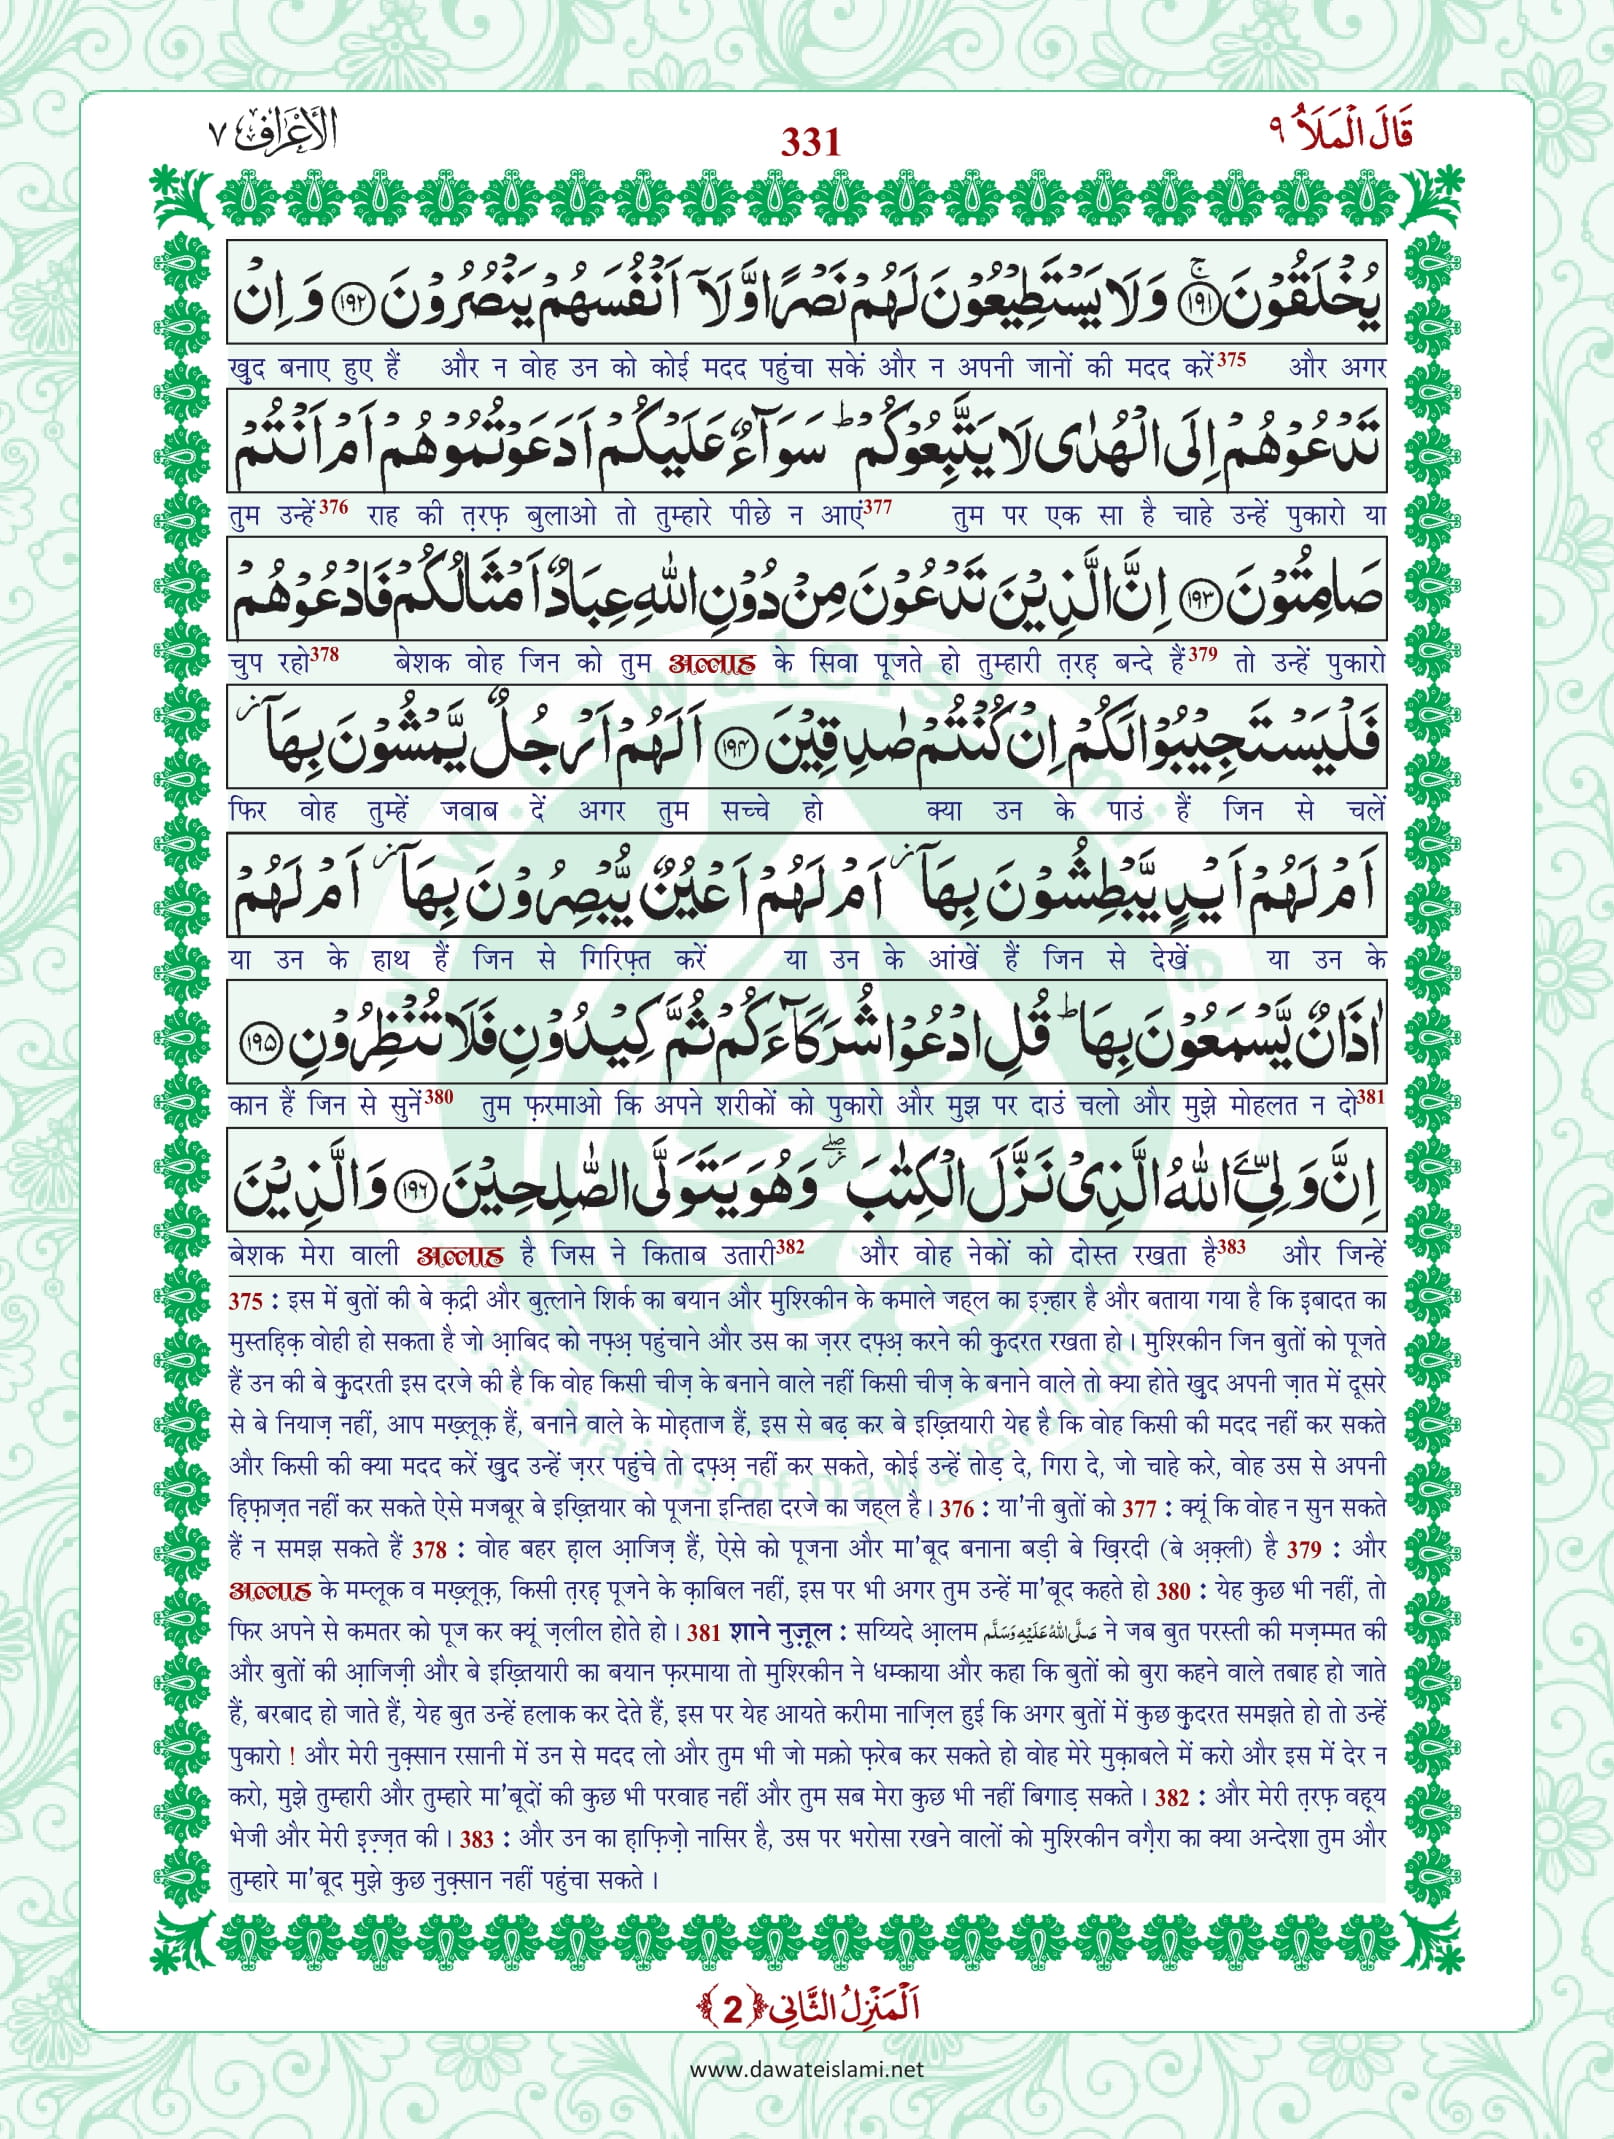 الأعراف ٧
331
قَالَ الْمَلَاُ ٩
يُخْلَقُوْنَ ﴿١٩١﴾ۚ وَلَا يَسْتَطِيْعُوْنَ لَهُمْ نَصْرًا وَّلَاۤ اَنْفُسَهُمْ يَنْصُرُوْنَ ﴿١٩٢﴾ وَ اِنْ
खुद बनाए हुए हैं और न वोह उन को कोई मदद पहुंचा सकें और न अपनी जानों की मदद करें375 और अगर
تَدْعُوْهُمْ اِلَى الْهُدٰى لَا يَتَّبِعُوْكُمْ ؕ سَوَآءٌ عَلَيْكُمْ اَدَعَوْتُمُوْهُمْ اَمْ اَنْتُمْ
तुम उन्हें376 राह की त़रफ़ बुलाओ तो तुम्हारे पीछे न आएं377 तुम पर एक सा है चाहे उन्हें पुकारो या
صَامِتُوْنَ ﴿١٩٣﴾ اِنَّ الَّذِيْنَ تَدْعُوْنَ مِنْ دُوْنِ اللّٰهِ عِبَادٌ اَمْثَالُكُمْ فَادْعُوْهُمْ
चुप रहो378 बेशक वोह जिन को तुम अल्लाह के सिवा पूजते हो तुम्हारी त़रह़ बन्दे हैं379 तो उन्हें पुकारो
فَلْيَسْتَجِيْبُوْا لَكُمْ اِنْ كُنْتُمْ صٰدِقِيْنَ ﴿١٩٤﴾ اَلَهُمْ اَرْجُلٌ يَّمْشُوْنَ بِهَاۤ ؗ
फिर वोह तुम्हें जवाब दें अगर तुम सच्चे हो क्या उन के पाउं हैं जिन से चलें
اَمْ لَهُمْ اَيْدٍ يَّبْطِشُوْنَ بِهَاۤ ؗ اَمْ لَهُمْ اَعْيُنٌ يُّبْصِرُوْنَ بِهَاۤ ؗ اَمْ لَهُمْ
या उन के हाथ हैं जिन से गिरिफ़्त करें या उन के आंखें हैं जिन से देखें या उन के
اٰذَانٌ يَّسْمَعُوْنَ بِهَا ؕ قُلِ ادْعُوْا شُرَكَآءَكُمْ ثُمَّ كِيْدُوْنِ فَلَا تُنْظِرُوْنِ ﴿١٩٥﴾
कान हैं जिन से सुनें380 तुम फ़रमाओ कि अपने शरीकों को पुकारो और मुझ पर दाउं चलो और मुझे मोहलत न दो381
اِنَّ وَلِيِّۦَ اللّٰهُ الَّذِيْ نَزَّلَ الْكِتٰبَ ۖؗ وَهُوَ يَتَوَلَّى الصّٰلِحِيْنَ ﴿١٩٦﴾ وَالَّذِيْنَ
बेशक मेरा वाली अल्लाह है जिस ने किताब उतारी382 और वोह नेकों को दोस्त रखता है383 और जिन्हें
375 : इस में बुतों की बे क़द्री और बुत़्लाने शिर्क का बयान और मुश्रिकीन के कमाले जह्ल का इज़्हार है और बताया गया है कि इ़बादत का
मुस्तह़िक़ वोही हो सकता है जो आ़बिद को नफ़्अ़ पहुंचाने और उस का ज़रर दफ़्अ़ करने की क़ुदरत रखता हो। मुश्रिकीन जिन बुतों को पूजते
हैं उन की बे क़ुदरती इस दरजे की है कि वोह किसी चीज़ के बनाने वाले नहीं किसी चीज़ के बनाने वाले तो क्या होते खुद अपनी ज़ात में दूसरे
से बे नियाज़ नहीं, आप मख़्लूक़ हैं, बनाने वाले के मोह़ताज हैं, इस से बढ़ कर बे इख़्तियारी येह है कि वोह किसी की मदद नहीं कर सकते
और किसी की क्या मदद करें खुद उन्हें ज़रर पहुंचे तो दफ़्अ़ नहीं कर सकते, कोई उन्हें तोड़ दे, गिरा दे, जो चाहे करे, वोह उस से अपनी
ह़िफ़ाज़त नहीं कर सकते ऐसे मजबूर बे इख़्तियार को पूजना इन्तिहा दरजे का जह्ल है। 376 : या'नी बुतों को 377 : क्यूं कि वोह न सुन सकते
हैं न समझ सकते हैं 378 : वोह बहर ह़ाल आ़जिज़ हैं, ऐसे को पूजना और मा'बूद बनाना बड़ी बे ख़िरदी (बे अ़क़्ली) है 379 : और
अल्लाह के मम्लूक व मख़्लूक़, किसी त़रह़ पूजने के क़ाबिल नहीं, इस पर भी अगर तुम उन्हें मा'बूद कहते हो 380 : येह कुछ भी नहीं, तो
फिर अपने से कमतर को पूज कर क्यूं ज़लील होते हो। 381 शाने नुज़ूल : सय्यिदे आ़लम صَلَّى اللهُ عَلَيْهِ وَسَلَّمَ ने जब बुत परस्ती की मज़म्मत की
और बुतों की आ़जिज़ी और बे इख़्तियारी का बयान फ़रमाया तो मुश्रिकीन ने धम्काया और कहा कि बुतों को बुरा कहने वाले तबाह हो जाते
हैं, बरबाद हो जाते हैं, येह बुत उन्हें हलाक कर देते हैं, इस पर येह आयते करीमा नाज़िल हुई कि अगर बुतों में कुछ क़ुदरत समझते हो तो उन्हें
पुकारो ! और मेरी नुक़्सान रसानी में उन से मदद लो और तुम भी जो मक्रो फ़रेब कर सकते हो वोह मेरे मुक़ाबले में करो और इस में देर न
करो, मुझे तुम्हारी और तुम्हारे मा'बूदों की कुछ भी परवाह नहीं और तुम सब मेरा कुछ भी नहीं बिगाड़ सकते। 382 : और मेरी त़रफ़ वह़्य
भेजी और मेरी इ़ज़्ज़त की। 383 : और उन का ह़ाफ़िज़ो नासिर है, उस पर भरोसा रखने वालों को मुश्रिकीन वग़ैरा का क्या अन्देशा तुम और
तुम्हारे मा'बूद मुझे कुछ नुक़्सान नहीं पहुंचा सकते।
اَلْمَنْزِلُ الثَّانِي ﴿2﴾
www.dawateislami.net